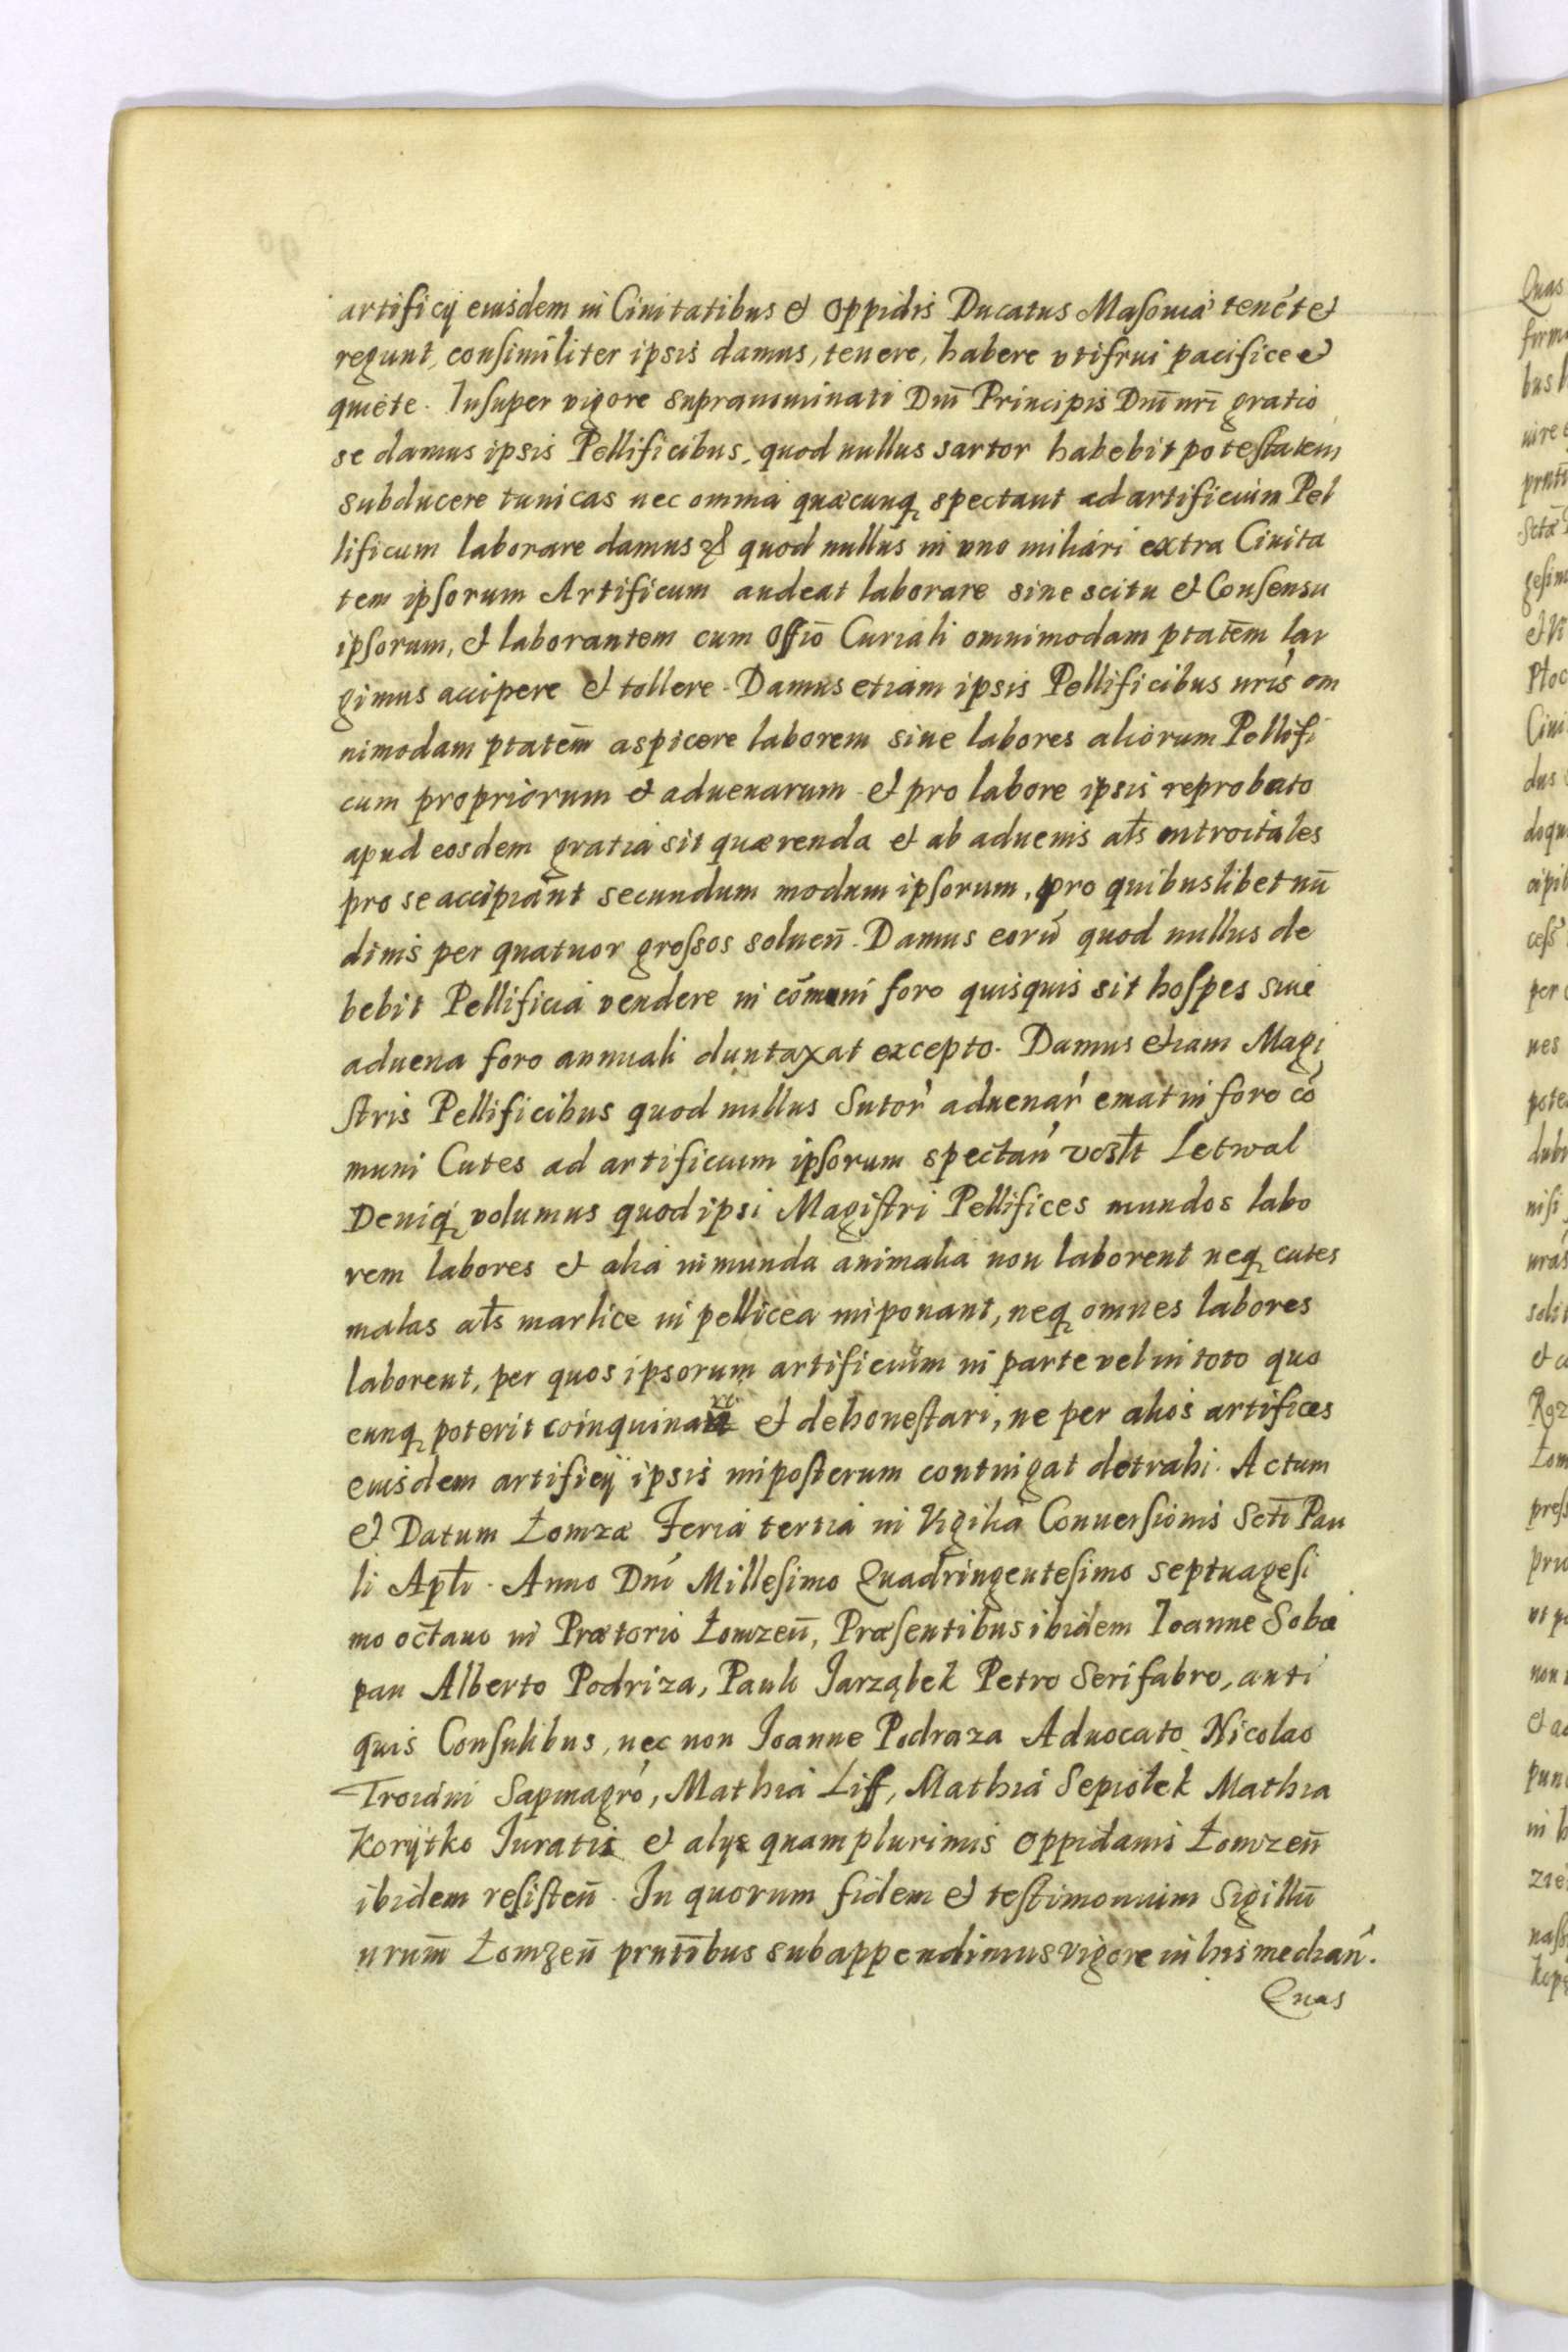 artificij eiusdem in Ciuitatibus et Oppidis Ducatus Masouiæ tenét et
regunt, consimiliter ipsis damus, tenere, habere vtifrui pacifice et
quiete. Insuper vigore supranominati Dm̄ Principis Dm̄ nrī gratio
se damus ipsis Pellificibus, quod nullus sartor habebit potestatem
subducere tunicas nec omnia quæcunq spectant ad artificium Pel
lificum laborare damus et quod nullus in vno miliari extra Ciuita
tem ipsorum Artificum audeat laborare sine scitu et Consensu
ipsorum, et laborantem cum Offīo Curiali omnimodam ptatēm lar
gimus accipere et tollere. Damus etiam ipsis Pellificibus nrīs om
nimodam ptatēm aspicere laborem siue labores aliorum Pellifi
cum propriorum et aduenarum et pro labore ipsis reprobato
apud eosdem gratia sit quærenda et ab aduenis ałs introitales
pro se accipiant secundum modum ipsorum, pro quibuslibet nū
dinis per quatuor grossos soluen̄. Damus eorū quod nullus de
bebit Pellificia vendere in cōmuni foro quisquis sit hospes siue
aduena foro annuali duntaxat excepto. Damus etiam Magi
stris Pellificibus quod nullus Sutor aduenar emat in foro cō
muni Cutes ad artificium ipsorum spectan̄ Letwal
Deniq volumus quod ipsi Magistri Pellifices mundos labo
rem labores et alia inmunda animalia non laborent neq cutes
malas ałs marlice in pellicea imponant, neq omnes labores
laborent, per quos ipsorum artificium in parte vel in toto quo
cunq poterit coinquinari et dehonestari, ne per alios artifices
eiusdem artificij ipsis imposterum contingat detrahi. Actum
et Datum Łomzæ Feria tertia in Vigilia Conuersionis Sctī Pau
li Apłi. Anno Dnī Millesimo Quadringentesimo septuagesi
mo octauo in Prætorio Łomzen̄, Præsentibus ibidem Ioanne Soba
pan Alberto Podriza, Pauli Jarząbek Petro Serifabro, anti
quis Consulibus, nec non Ioanne Podraza Aduocato Nicolao
Troiani Sapinagro, Mathia Liss, Mathia Sepiołek Mathia
Korÿtko Iuratis et alys quamplurimis Oppidanis Łomzen̄
ibidem resisten̄. In quorum fidem et testimonium Sigillū
nrum̄ Łomzen̄ prntībus subappendimus vigore in his median̄.
Quas